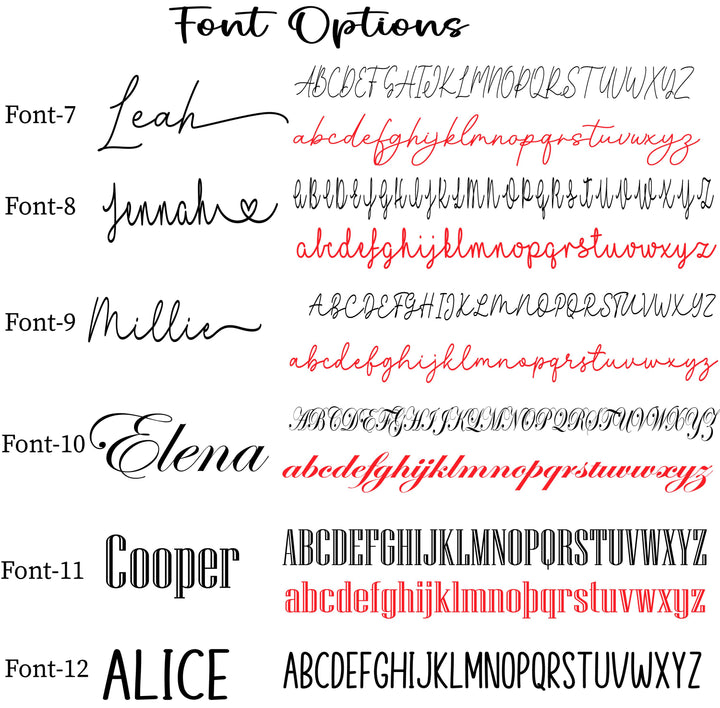 Font Options
Font-7 Leah ABCDEFGHIJKLMNOPQRSTUVWXYZ
abcdefghijklmnopqrstuvwxyz
Font-8 Jennah ABCDEFGHIJKLMNOPQRSTUVWXYZ
abcdefghijklmnopqrstuvwxyz
Font-9 Millie ABCDEFGHIJKLMNOPQRSTUVWXYZ
abcdefghijklmnopqrstuvwxyz
Font-10 Elena ABCDEFGHIJKLMNOPQRSTUVWXYZ
abcdefghijklmnopqrstuvwxyz
Font-11 Cooper ABCDEFGHIJKLMNOPQRSTUVWXYZ
abcdefghijklmnopqrstuvwxyz
Font-12 ALICE ABCDEFGHIJKLMNOPQRSTUVWXYZ